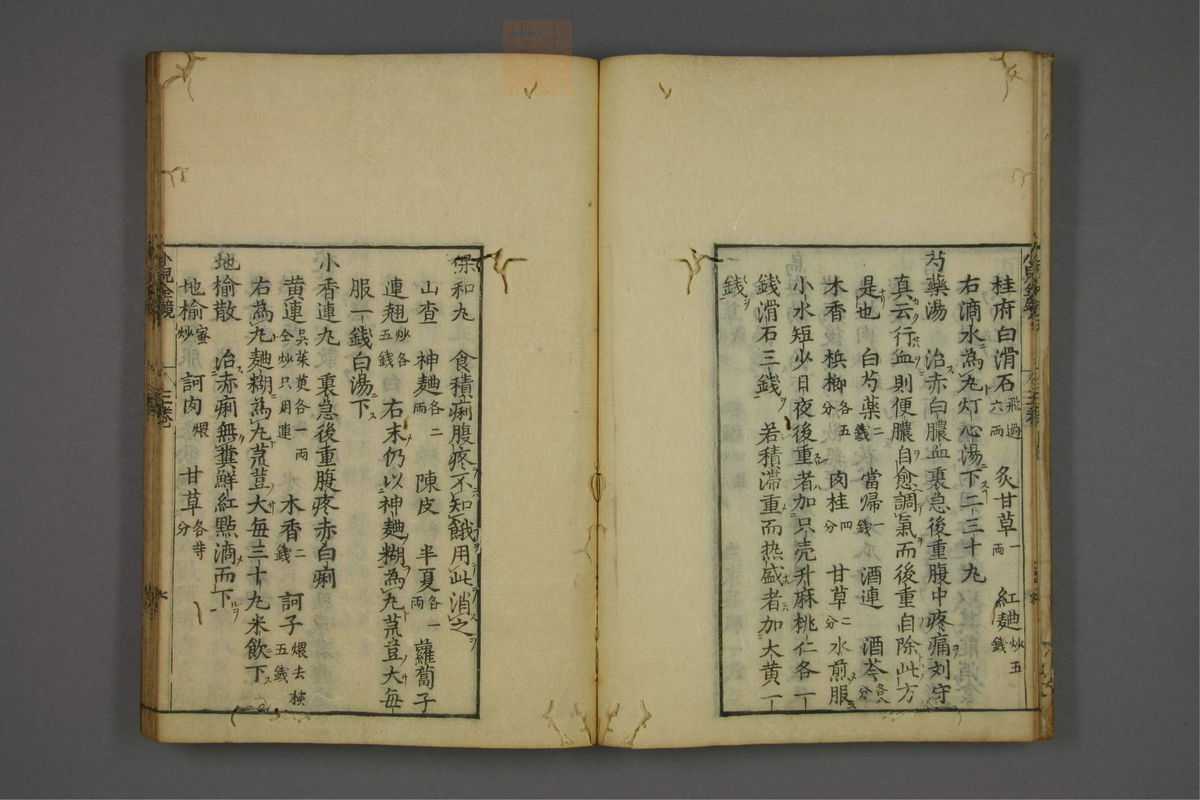 桂府白滑石飛過六兩　炙甘草一兩　紅麯炒五錢
右滴水為丸灯心湯下二三十丸
芍藥湯　治赤白膿血裏急後重腹中疼痛刘守
真云行血則便膿自愈調氣而後重自除此方
是也　白芍藥二錢　當帰一錢　酒連　酒芩各八分
木香　梹榔各五分　肉桂四分　甘草二分水煎服
小水短少日夜後重者加只壳升麻桃仁各一
錢滑石三錢　若積滯重而热盛者加大黄一
錢
保和丸　食積痢腹疼不知餓用此消之
山查　神麯各二兩　陳皮　半夏各一兩　蘿蔔子
連翹炒各五錢　右末仍以神麯糊為丸荒荳大每
服一錢白湯下
小香連丸　裏急後重腹疼赤白痢
黄連吳茱萸各一兩仝炒只用連　木香二錢　訶子煨去核五錢
右為丸麯糊為丸荒荳大每三十丸米飲下
地榆散　治赤痢無糞鮮紅點滴而下
地榆蜜炒　訶肉煨　甘草各等分